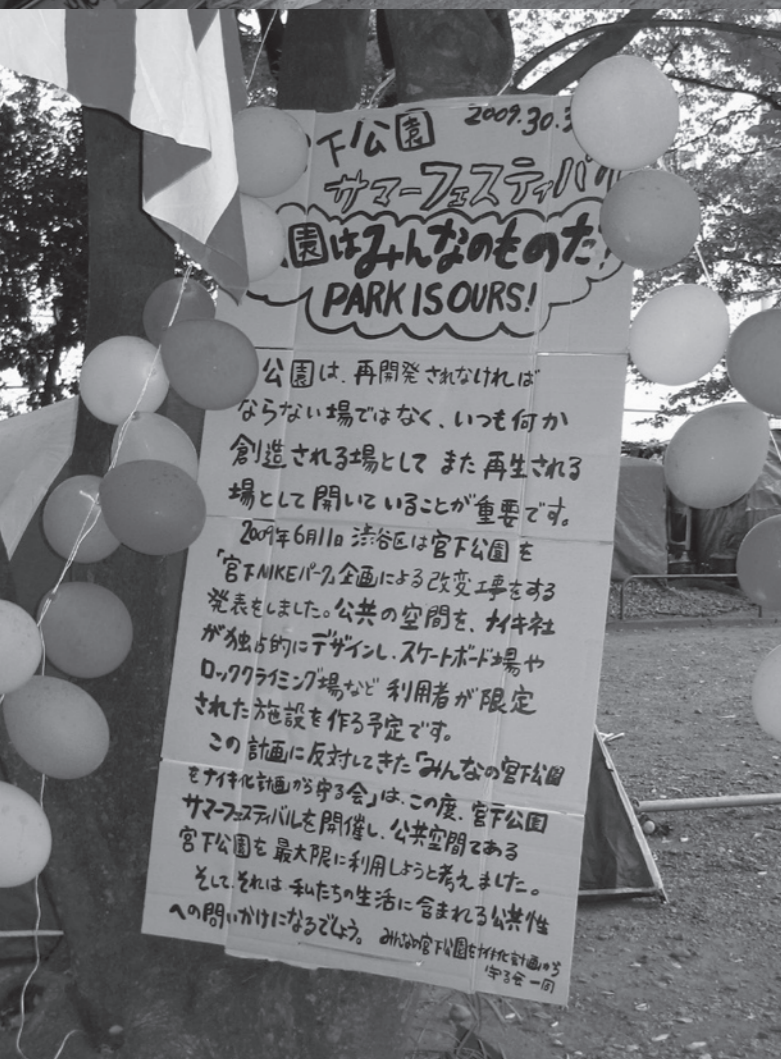 下公園 2009.30.3
サマーフェスティバ
園はみんなのものだ!
PARK IS OURS!
公園は、再開発されなければ
ならない場ではなく、いつも何か
創造される場として また 再生される
場として 開いていることが重要です。
2009年6月11日 渋谷区は宮下公園を
「宮下NIKEパーク」企画による改変工事をする
発表をしました。公共の空間を、ナイキ社
が独占的にデザインし、スケートボード場や
ロッククライミング場など 利用者が限定
された施設を作る予定です。
この計画に反対してきた「みんなの宮下公園
をナイキ化計画から守る会」は、この度、宮下公園
サマーフェスティバルを開催し、公共空間である
宮下公園を最大限に利用しようと考えました。
そして、それは 私たちの生活に含まれる公共性
への問いかけになるでしょう。 みんなの宮下公園をナイキ化計画から
守る会 一同